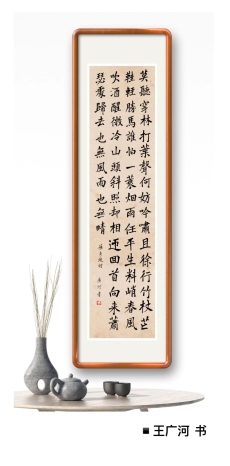 莫聽穿林打葉聲何妨吟嘯且徐行竹杖芒
鞋輕勝馬誰怕一蓑烟雨任平生料峭春風
吹酒醒微冷山頭斜照却相迎回首向來蕭
瑟處歸去也無風雨也無晴
■ 王广河 书